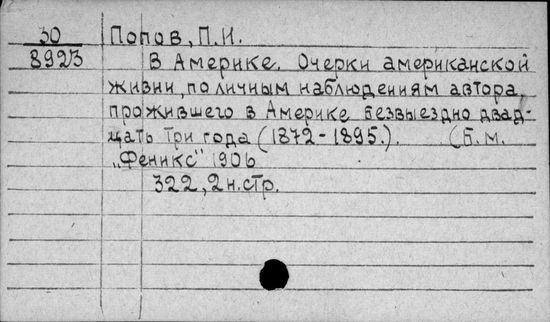 30 Попов, П.И.
8923 В Америке. Очерки американской
жизни, по личным наблюдениям автора,
прожившего в Америке безвыездно двад-
цать три года (1872-1895.). (Б.м.
„Феникс" 1906
322, 2 н.стр.